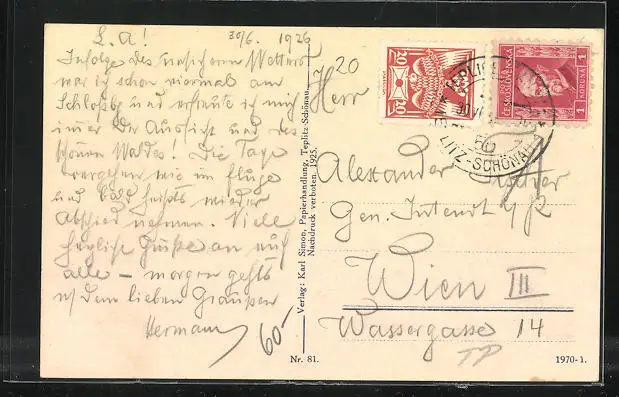 L. A! 30/6. 1926
Infolge des unsicheren Wetters
war ich schon viermal am
Schloßbg und erfreute ich mich
immer der Aussicht und des
schönen Waldes! Die Tage
vergehen wie im Fluge
und bald heißts wieder
Abschied nehmen. Viele
herzliche Grüße an euch
alle – morgen gehts
n/ dem lieben Graupen
Hermann
60-
Verlag: Karl Simon, Papierhandlung, Teplitz-Schönau.
Nachdruck verboten. 1925.
20
Herr
Alexander
Gen. Intendt
Wien III
Wassergasse 14
TP
Nr. 81.
1970-1.
20
20
ČESKOSLOVENSKÁ
1 KORUNA 1
LITZ-SCHÖNAU